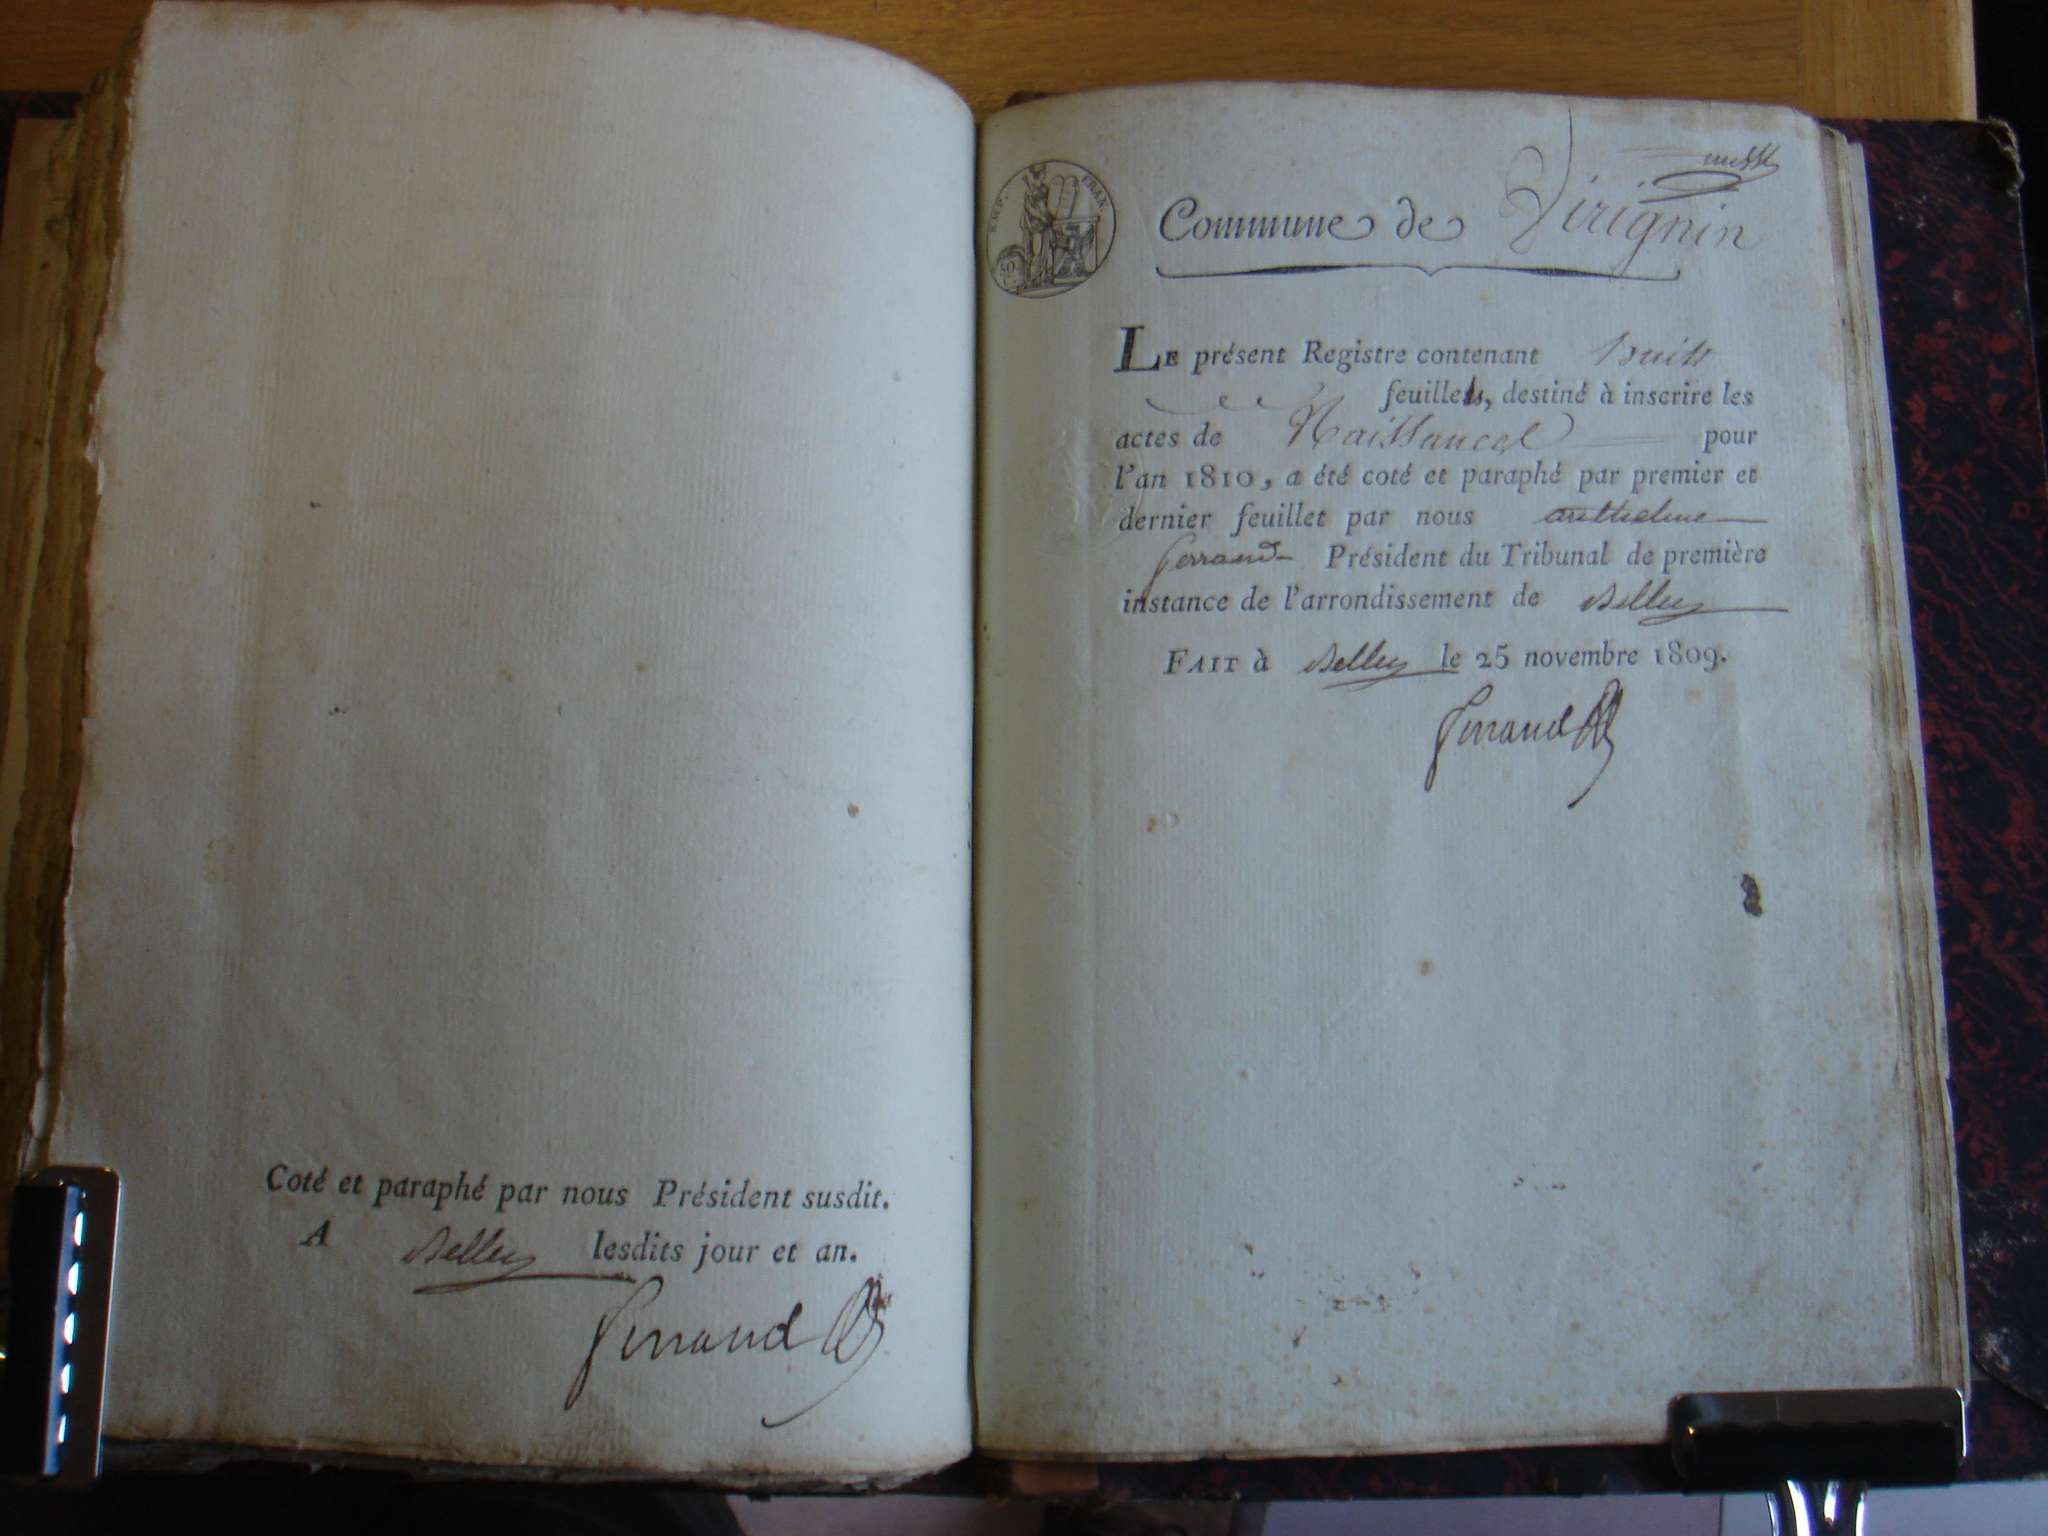 Coté et paraphé par nous Président susdit.
A Belley lesdits jour et an.
Ferrand
EMP. FRAN.
50
Commune de Virignin
LE présent Registre contenant huit
feuillets, destiné à inscrire les
actes de Naissances pour
l'an 1810, a été coté et paraphé par premier et
dernier feuillet par nous anthelme
ferrand Président du Tribunal de première
instance de l'arrondissement de Belley
FAIT à Belley le 25 novembre 1809.
Ferrand